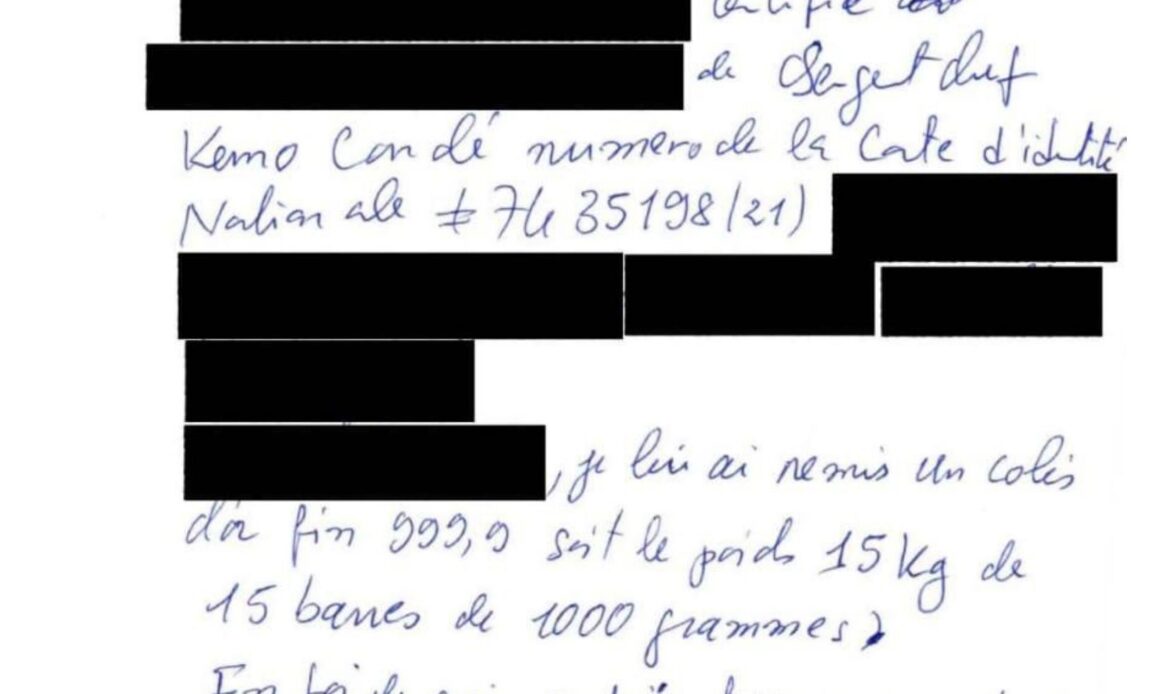 certifie
de Sergent chef
Kemo Condé numero de la Carte d'identité
Nationale # 7435198/21)
, je lui ai remis un colis
d'or fin 999,9 soit le poids 15 kg de
15 barres de 1000 grammes)
En foi de